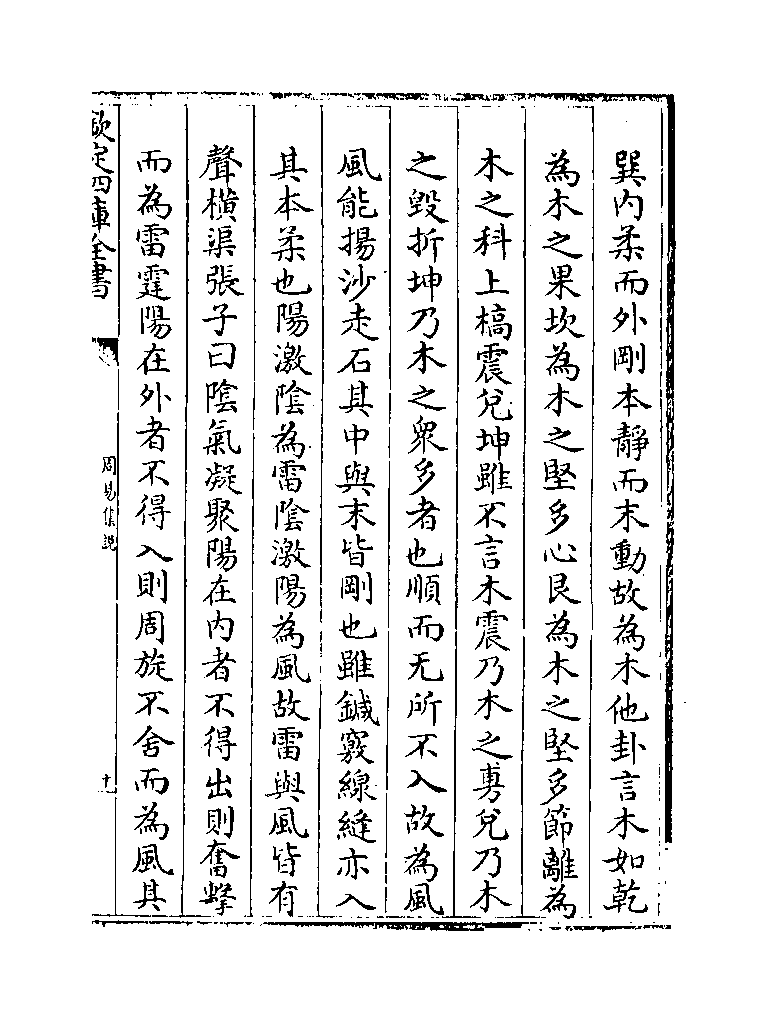 巽内柔而外剛本靜而末動故為木他卦言木如乾
為木之果坎為木之堅多心艮為木之堅多節離為
木之科上槁震兌坤雖不言木震乃木之旉兌乃木
之毀折坤乃木之衆多者也順而无所不入故為風
風能揚沙走石其中與末皆剛也雖鍼竅線縫亦入
其本柔也陽激陰為雷陰激陽為風故雷與風皆有
聲橫渠張子曰陰氣凝聚陽在内者不得出則奮擊
而為雷霆陽在外者不得入則周旋不舍而為風其
欽定四庫全書
周易集説
十九